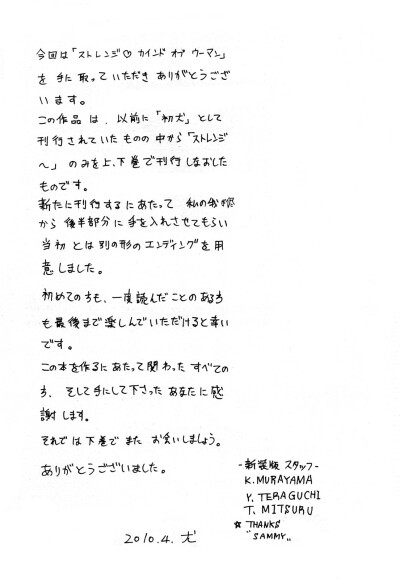 今回は「ストレンジ♡カインド オブ ウーマン」
を 手に 取って いただき ありがとうござ
います。
この作品 は、以前に 「初犬」として
刊行されていた ものの 中から「ストレンジ
〜」 のみを上、下巻で刊行しなおした
ものです。
新たに刊行するにあたって 私の我が儘
から 後半部分に 手を入れさせてもらい
当初 とは 別の形の エンディングを用
意しました。
初めての方も、一度読んだことのある方
も最後まで楽しんでいただけると幸い
です。
この本を作るにあたって関わった すべての
方、そして手にして下さった あなたに感
謝します。
それでは下巻で また お会いしましょう。
ありがとうございました。
2010.4. 犬
-新装版 スタッフ-
K.MURAYAMA
Y.TERAGUCHI
T.MITSURU
☆THANKS
"SAMMY"